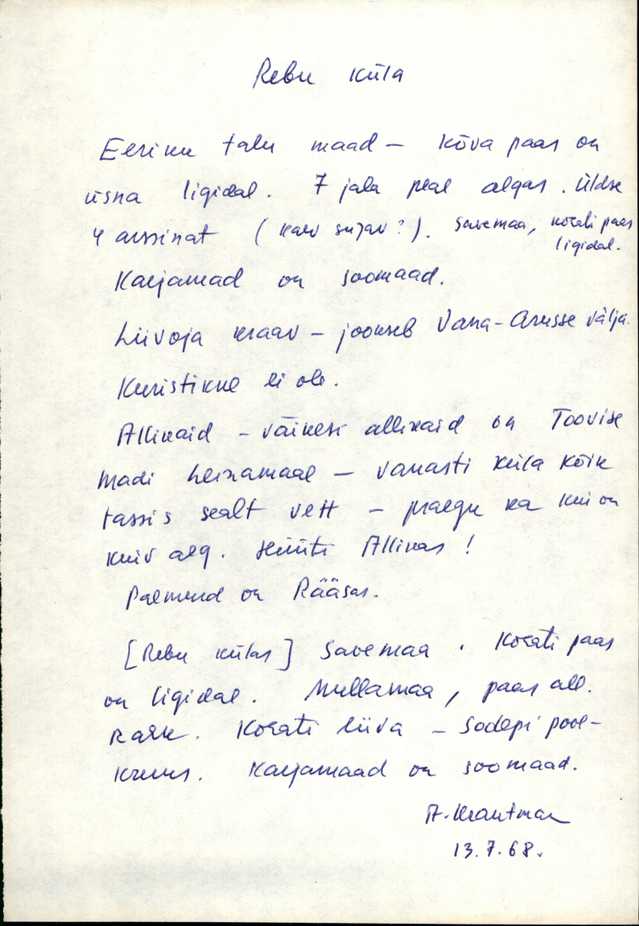 Rebu küla
Eeriku talu maad – kõva paas on
üsna ligidal. 7 jala peal algas. Üldse
4 arssinat (kaev sügav?). Savemaa, kohati paas
ligidal.
Karjamaad on soomaad.
Liivoja kraav – jookseb Vana-Arusse välja.
Kuristikke ei ole.
Allikaid – väikesi allikaid on Toovise
Madi heinamaal – vanasti küla kõik
tassis sealt vett – praegu ka kui on
kuiv aeg. Hüüti Allikas!
Paemurd on Rääsas.
[Rebu külas] Savemaa. Kohati paas
on ligidal. Mullamaa, paas all.
Rask. Kohati liiva – Sodepi pool-
kruus. Karjamaad on soomaad.
A. Krautman
13.7.68.